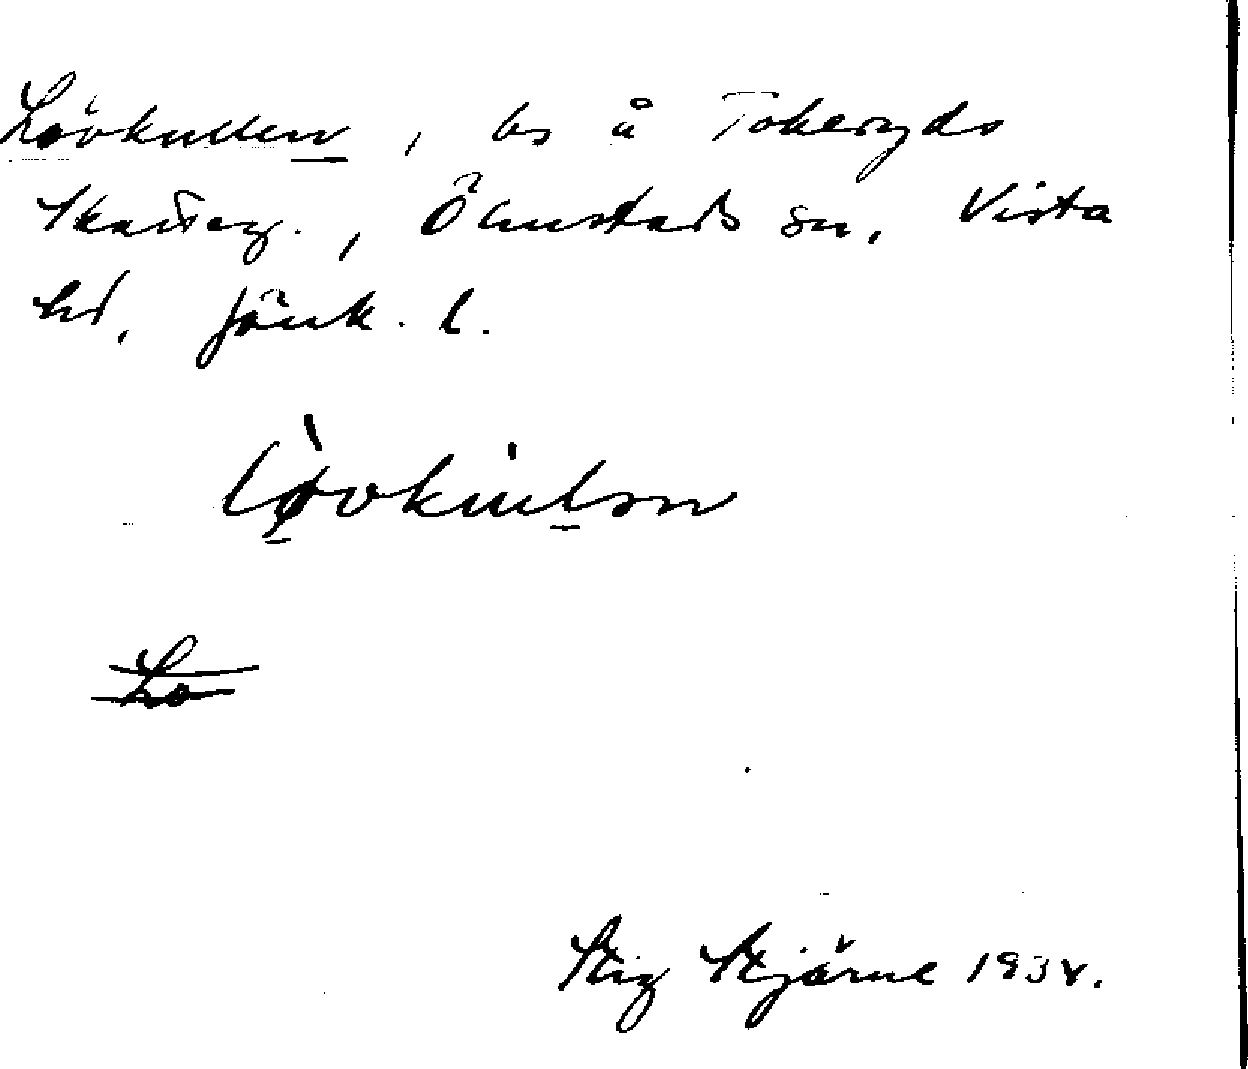 Lövkullen, bs å Tokeryds
Skatteg., Ölmstads sn, Vista
hd, Jönk. l.
Lo
Stig Stjärne 193